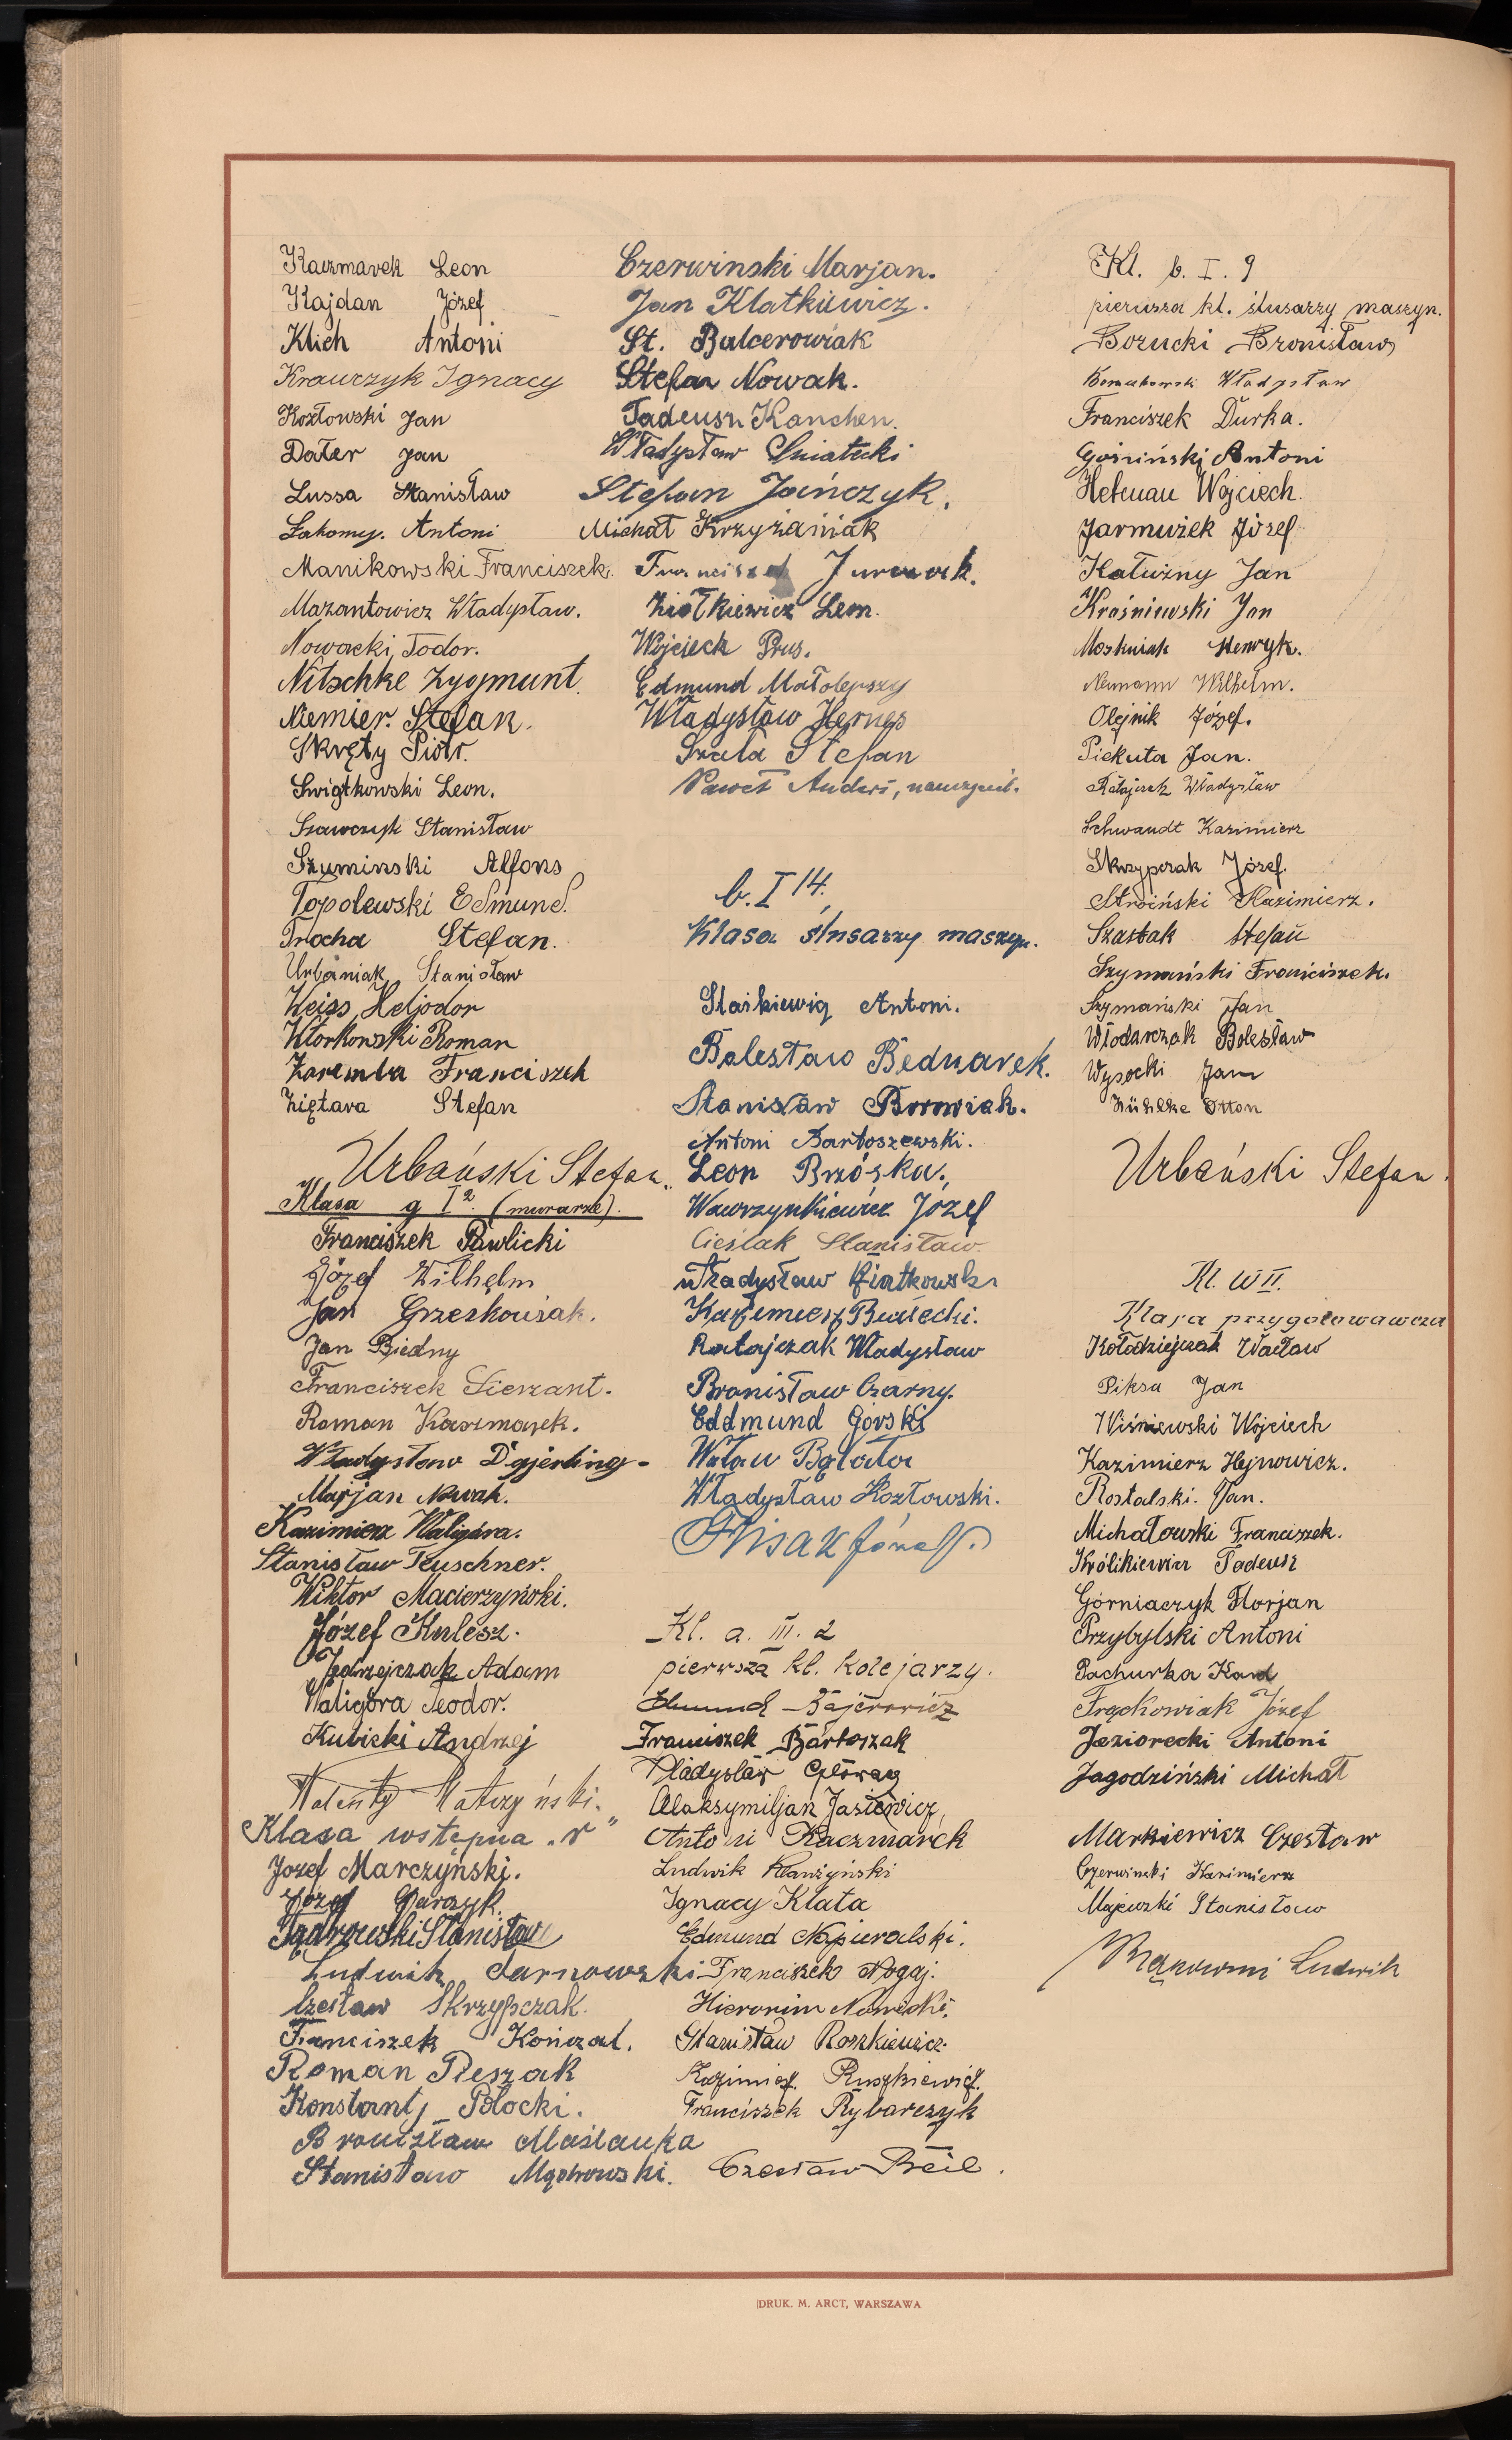 Kaczmarek Leon
Kajdan Józef
Klich Antoni
Krawczyk Ignacy
Kozłowski Jan
Dater Jan
Lussa Stanisław
Łakomy. Antoni
Manikowski Franciszek.
Mazantowicz Władysław.
Nowacki, Todor.
Nitschke Zygmunt.
Niemier. Stefan.
Skręty Piotr.
Świątkowski Leon.
Szawczyk Stanisław
Szuminski Alfons
Topolewski Edmund.
Trocha Stefan.
Urbaniak Stanisław
Weiss, Heljodor
Wtorkowski Roman
Zaremba Franciszek
Ziętara Stefan
Urbański Stefan.
Klasa g I 2. (murarze).
Franciszek Pawlicki
Józef Wilhelm
Jan Grzeskowiak.
Jan Biedny
Franciszek Sierzant.
Roman Kaczmarek.
Władysław Dajerling-
Marjan Nowak.
Kazimierz Waligóra.
Stanisław Teuschner.
Wiktor Macierzyński.
Józef Kulesz.
Jędrzejczak Adam
Waligóra Teodor.
Kubicki Andrzej
Walenty Ratczyński.
Klasa wstępna "r"
Jozef Marczyński.
Józef Garczyk.
Stanisław
Ludwik Sarnowski
Czesław Skrzypczak.
Franciszek Kończal.
Roman Pieszak
Konstanty Płocki.
Bronisław Maślanka
Stanisław Mąchowski.
Czerwinski Marjan.
Jan Klatkiewicz.
St. Balcerowiak
Stefan Nowak.
Tadeusz Kanchen.
Władysław Śniatecki
Stefan Jańczyk.
Michał Krzyżaniak
Franciszek Jurczak.
Ziółkiewicz Leon.
Wojciech Prus.
Edmund Małolepszy
Władysław Hernes
Szata Stefan
Paweł Anders, nauczyciel.
b. I 14.
Klasa ślusarzy maszyn.
Staśkiewicz Antoni.
Bolesław Bednarek.
Stanisław Borowiak.
Antoni Bartoszewski.
Leon Brzóska.
Wawrzynkiewicz Józef
Cieślak Stanisław.
Władysław Kiatkowski
Kazimierz Białecki.
Ratajczak Władysław
Bronisław Czarny.
Eddmund Górski
Wacław Bąlata
Władysław Kozłowski.
Fisiak Józef.
Kl. a. III. 2
pierwsza kl. kolejarzy.
Edmund Bajerowicz
Franciszek Bartoszak
Władysław Główny
Maksymiljan Jasiewicz,
Antoni Kaczmarek
Ludwik Klanżyński
Ignacy Klata
Edmund Napieralski.
Franciszek Nogaj.
Hieronim Nowicki.
Stanisław Roszkiewicz.
Kazimierz Ruszkiewicz.
Franciszek Rybarczyk
Czesław Beil.
Kl. b. I. 9
pierwsza kl. ślusarzy maszyn.
Borucki Bronisław
Władysław
Franciszek Durka.
Gośiński Antoni
Wojciech.
Jarmużek Józef
Kałużny Jan
Kraśniewski Jan
Moskwiak Henryk.
Neumann Wilhelm.
Olejnik Józef.
Piekuta Jan.
Ratajczak Władysław
Schwandt Kazimierz
Skrzypczak Józef.
Stroiński Kazimierz.
Szastak Stefan
Szymański Franciszek.
Szymański Jan
Włodarczak Bolesław
Wysocki Jan
Zühlke Otton
Urbański Stefan.
Kl. W II.
Klasa przygotowawcza
Kołodziejczak Wacław
Piksa Jan
Wiśniewski Wojciech
Kazimierz Hejnowicz.
Rostalski. Jan.
Michałowski Franciszek.
Królikiewicz Tadeusz
Górniaczyk Florjan
Przybylski Antoni
Pachurka Karol
Frąckowiak Józef
Jeziorecki Antoni
Jagodziński Michał
Markiewicz Czesław
Czerwiński Kazimierz
Majewski Stanisław
Ludwik
DRUK. M. ARCT, WARSZAWA